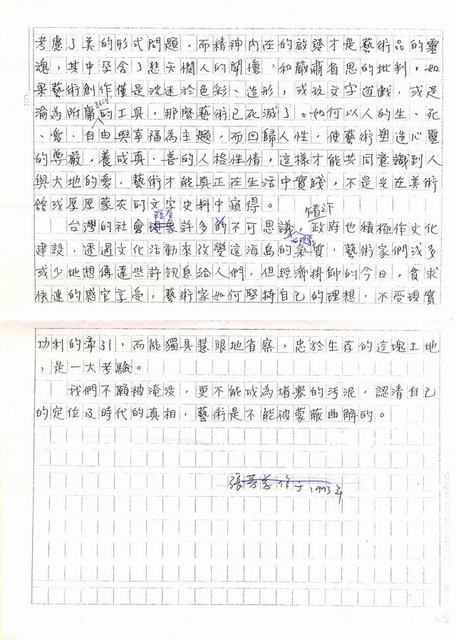 考慮了美的形式問題，而精神內在的啟發才是藝術品的靈
魂，其中孕含了悲天憫人的關懷，和嚴肅省思的批判，如
果藝術創作僅是沈迷於色彩、造形，或放文字遊戲，或是
淪為附庸的工具，那麼藝術已死滅了。如何以人的生、死
、愛、自由與幸福為主題，而回歸人性，使藝術塑造心靈
的尊嚴，養成真、善的人格性情，這樣才能共同意識到人
與大地的愛，藝術才能真正在生活中實踐，不是光在美術
館或層層蒙灰的文字史料中窺得。
台灣的社會現象許多的不可思議，政府也積極作文化
建設，透過文化活動來改變這海島的氣質，藝術家們或多
或少地想傳達些許訊息給人們，但經濟掛帥的今日，貪求
快速的感官享受，藝術家如何堅持自己的理想，不受現實
功利的牽引，而能獨具慧眼地省察，忠於生存的這塊土地
，是一大考驗。
我們不願被淹没，更不能成為堵塞的污泥，認清自己
的定位及時代的真相，藝術是不能被蒙蔽曲解的。
1993年